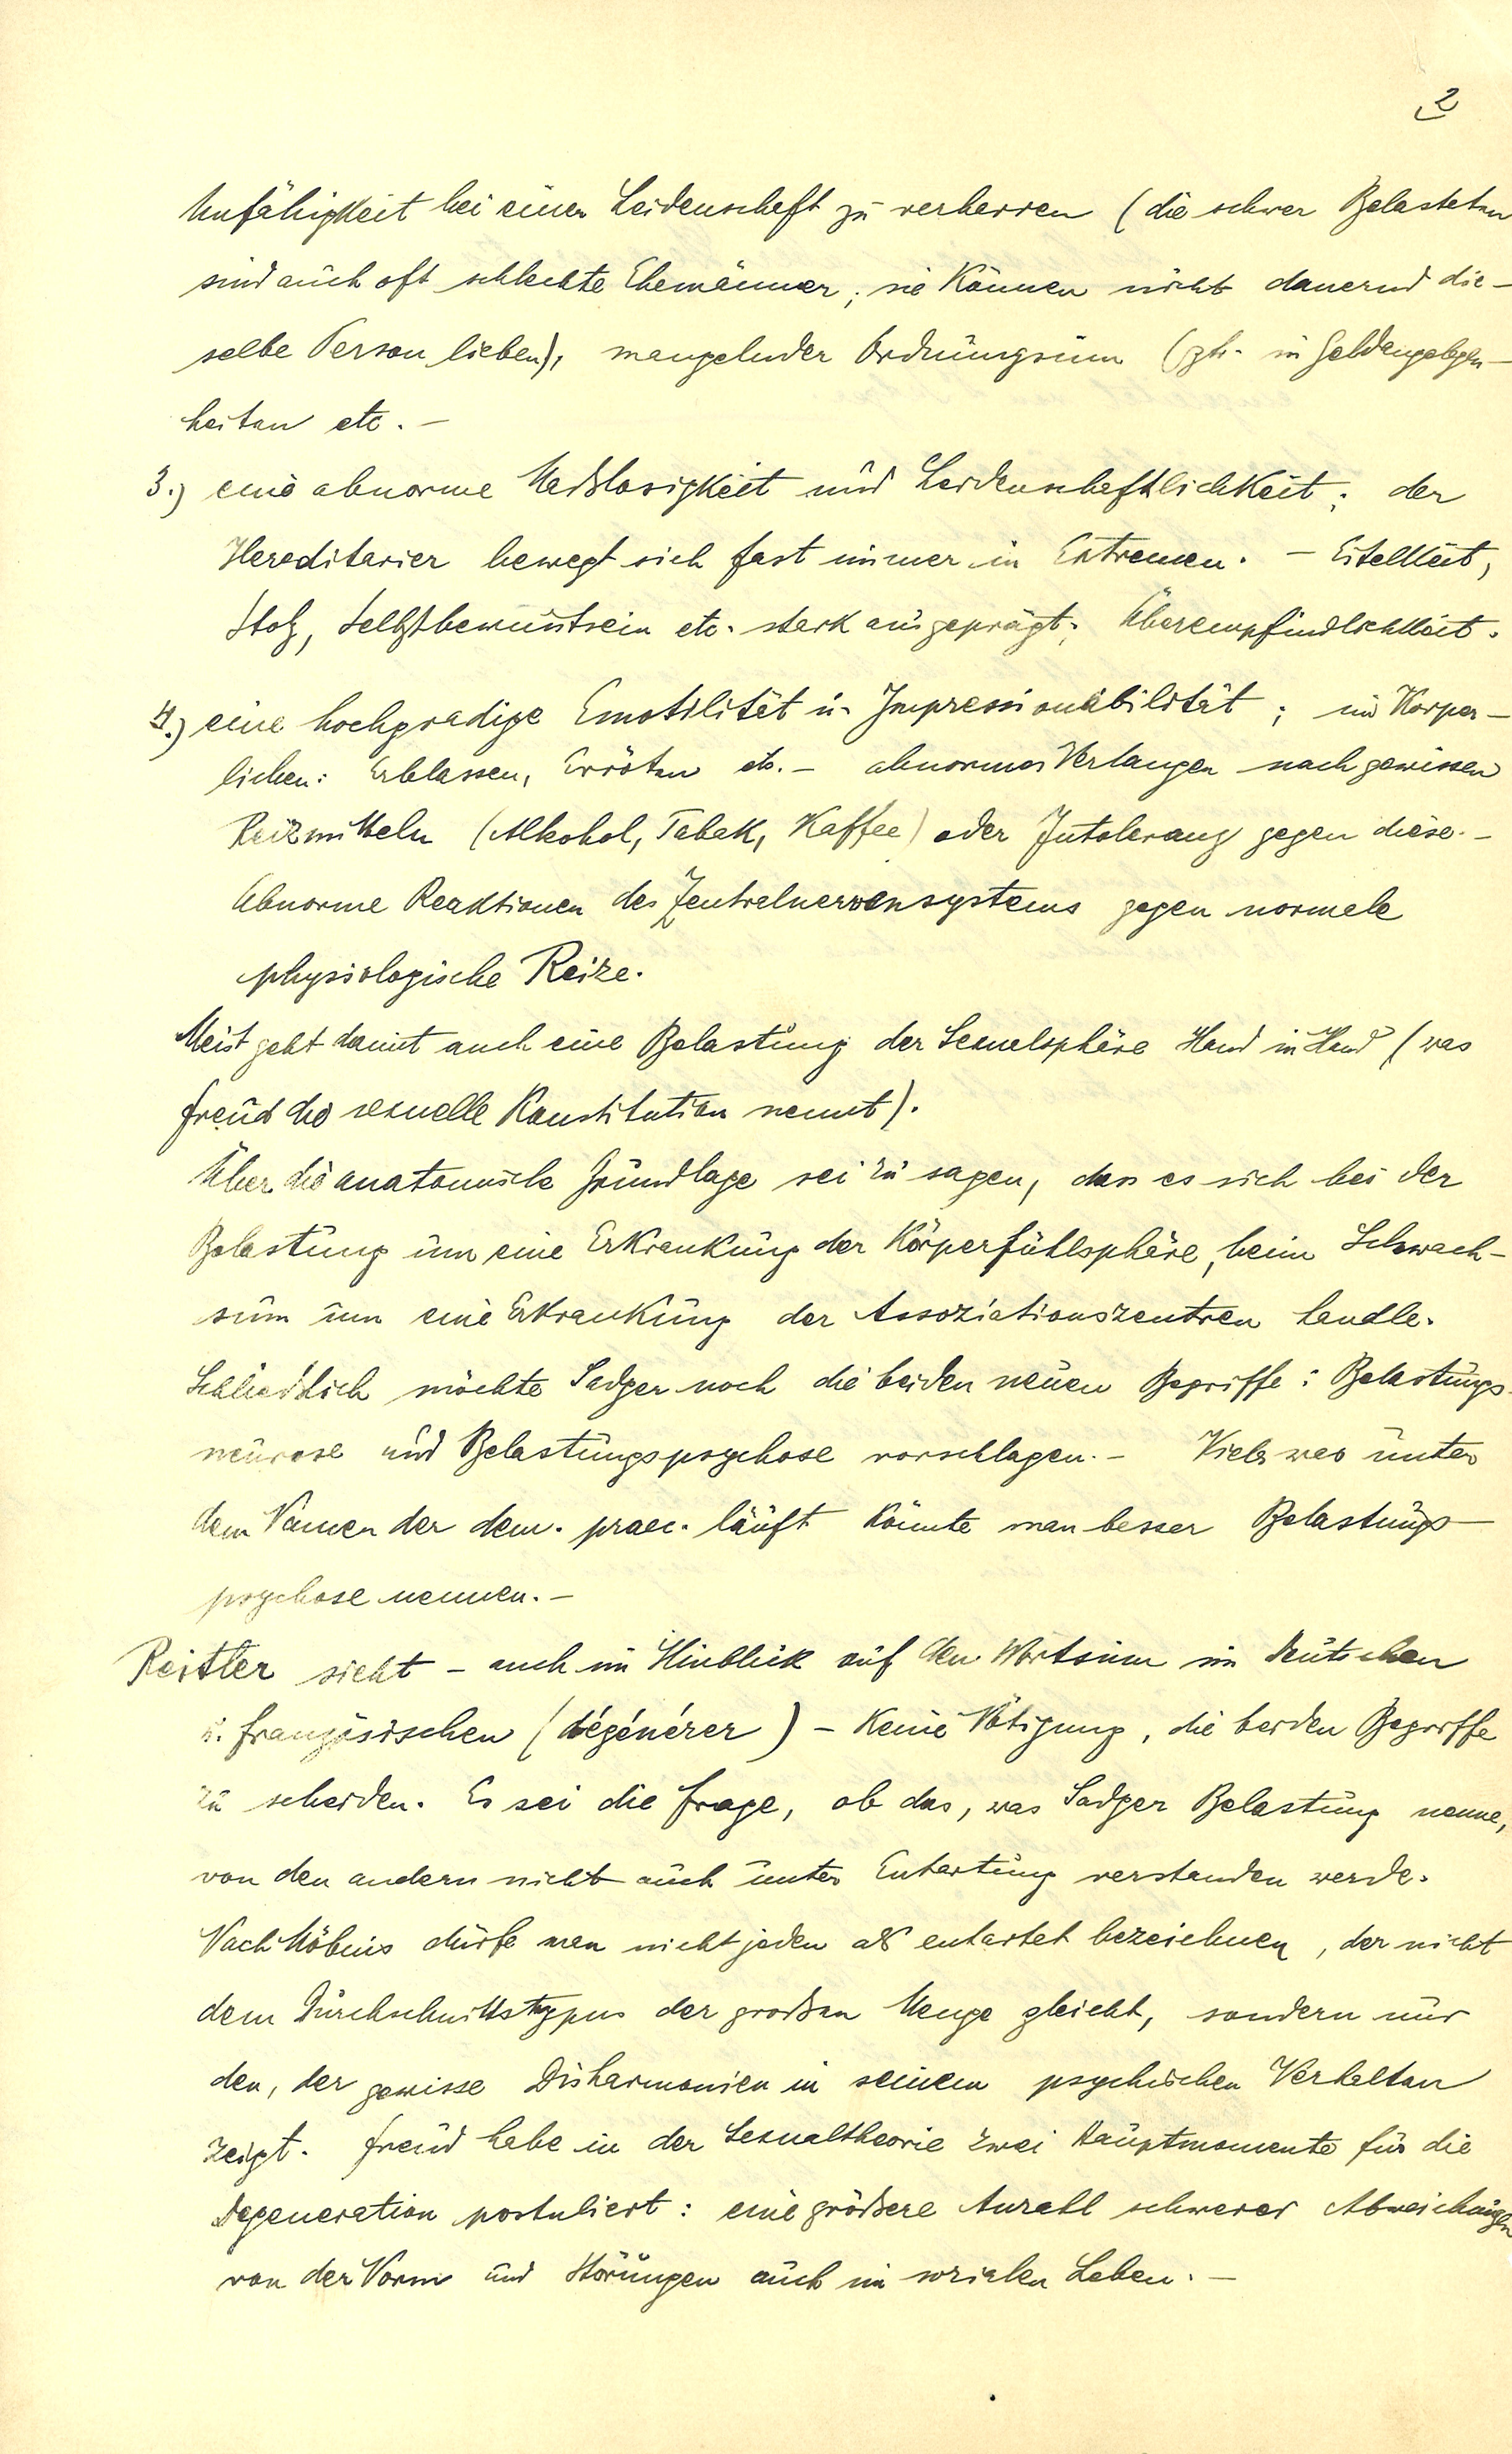 2
Unfähigkeit bei einer Leidenschaft zu verharren (die schwer Belasteten
sind auch oft schlechte Ehemänner; sie können nicht dauernd die-
selbe Person lieben), mangelnder Ordnungssinn (zb. in Geldangelegen-
heiten etc. –
3.) eine abnorme Maßlosigkeit und Leidenschaftlichkeit; der
Hereditarier bewegt sich fast immer in Extremen. – Eitelkeit,
Stolz, Selbstbewusstsein etc. stark ausgeprägt; Überempfindlichkeit.
4.) eine hochgradige Emotilität u. Impressionabilität; im Körper-
lichen: Erblassen, Erröten etc. – abnormes Verlangen nach gewissen
Reizmitteln (Alkohol, Tabak, Kaffee) oder Intoleranz gegen diese. –
Abnorme Reaktionen des Zentralnervensystems gegen normale
physiologische Reize.
Meist geht damit auch eine Belastung der Sexualsphäre Hand in Hand (was
Freud die sexuelle Konstitution nennt).
Über die anatomische Grundlage sei zu sagen, dass es sich bei der
Belastung um eine Erkrankung der Körperfühlsphäre, beim Schwach-
sinn um eine Erkrankung der Assoziationszentren handle.
Schließlich möchte Sadger noch die beiden neuen Begriffe: Belastungs-
neurose und Belastungspsychose vorschlagen. – Vieles was unter
dem Namen der dem. praec. läuft könnte man besser Belastungs-
psychose nennen. –
Reitler sieht – auch im Hinblick auf den Wortsinn im Deutschen
u. französischen (dégénérer) – keine Nötigung, die beiden Begriffe
zu scheiden. Es sei die Frage, ob das, was Sadger Belastung nenne,
von den andern nicht auch unter Entartung verstanden werde.
Nach Möbius dürfe man nicht jeden als entartet bezeichnen, der nicht
dem Durchschnittstypus der großen Menge gleicht, sondern nur
den, der gewisse Disharmonien in seinem psychischen Verhalten
zeigt. Freud habe in der Sexualtheorie zwei Hauptmomente für die
Degeneration postuliert: eine größere Anzahl schwerer Abweichungen
von der Norm und Störungen auch im sozialen Leben. –